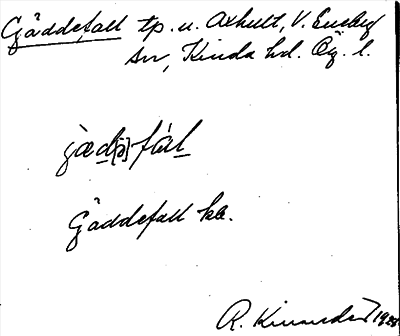 Gäddefall tp. u. Axhult, V. Eneby
sn, Kinda hd. Ög. l.
jæd[ə]fál
Gäddefall kb.
R. Kinander